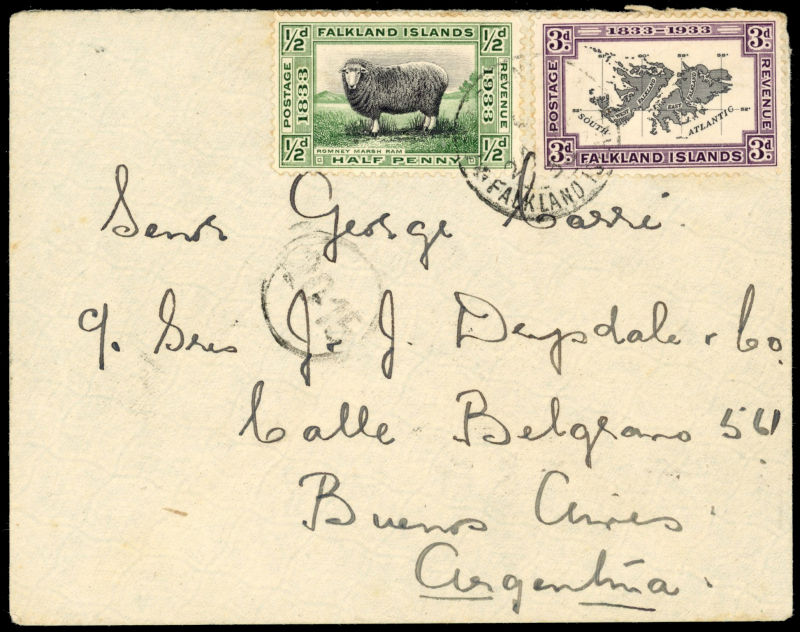 ½d FALKLAND ISLANDS ½d
POSTAGE 1833 1933 REVENUE
ROMNEY MARSH RAM
½d HALF PENNY ½d
3d. 1833-1933 3d.
POSTAGE REVENUE
SOUTH ATLANTIC
WEST FALKLAND EAST FALKLAND
3d. FALKLAND ISLANDS 3d.
FALKLAND IS
Senor George
c/o Sres J. & J. Drysdale & Co.
Calle Belgrano 561
Buenos Aires
Argentina.